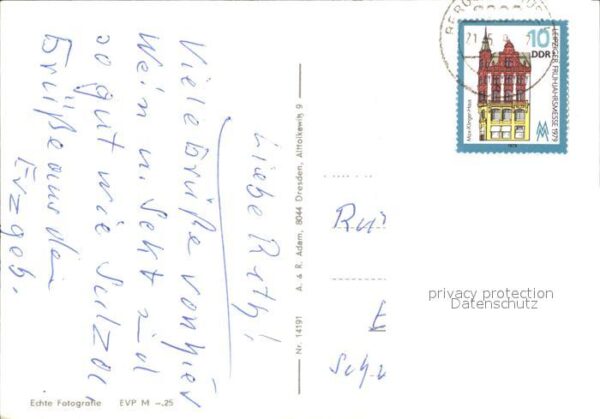 Liebe Ruth!
Viele Grüße von hier
Wein u. Sekt sind
so gut wie
Grüße aus dem
Erzgeb.
Echte Fotografie EVP M -,25
Nr. 14191 A. & R. Adam, 8044 Dresden, Altfolkewitz 9
10
DDR
LEIPZIGER FRÜHJAHRSMESSE 1979
Max-Klinger-Haus
1979
21
privacy protection
Datenschutz